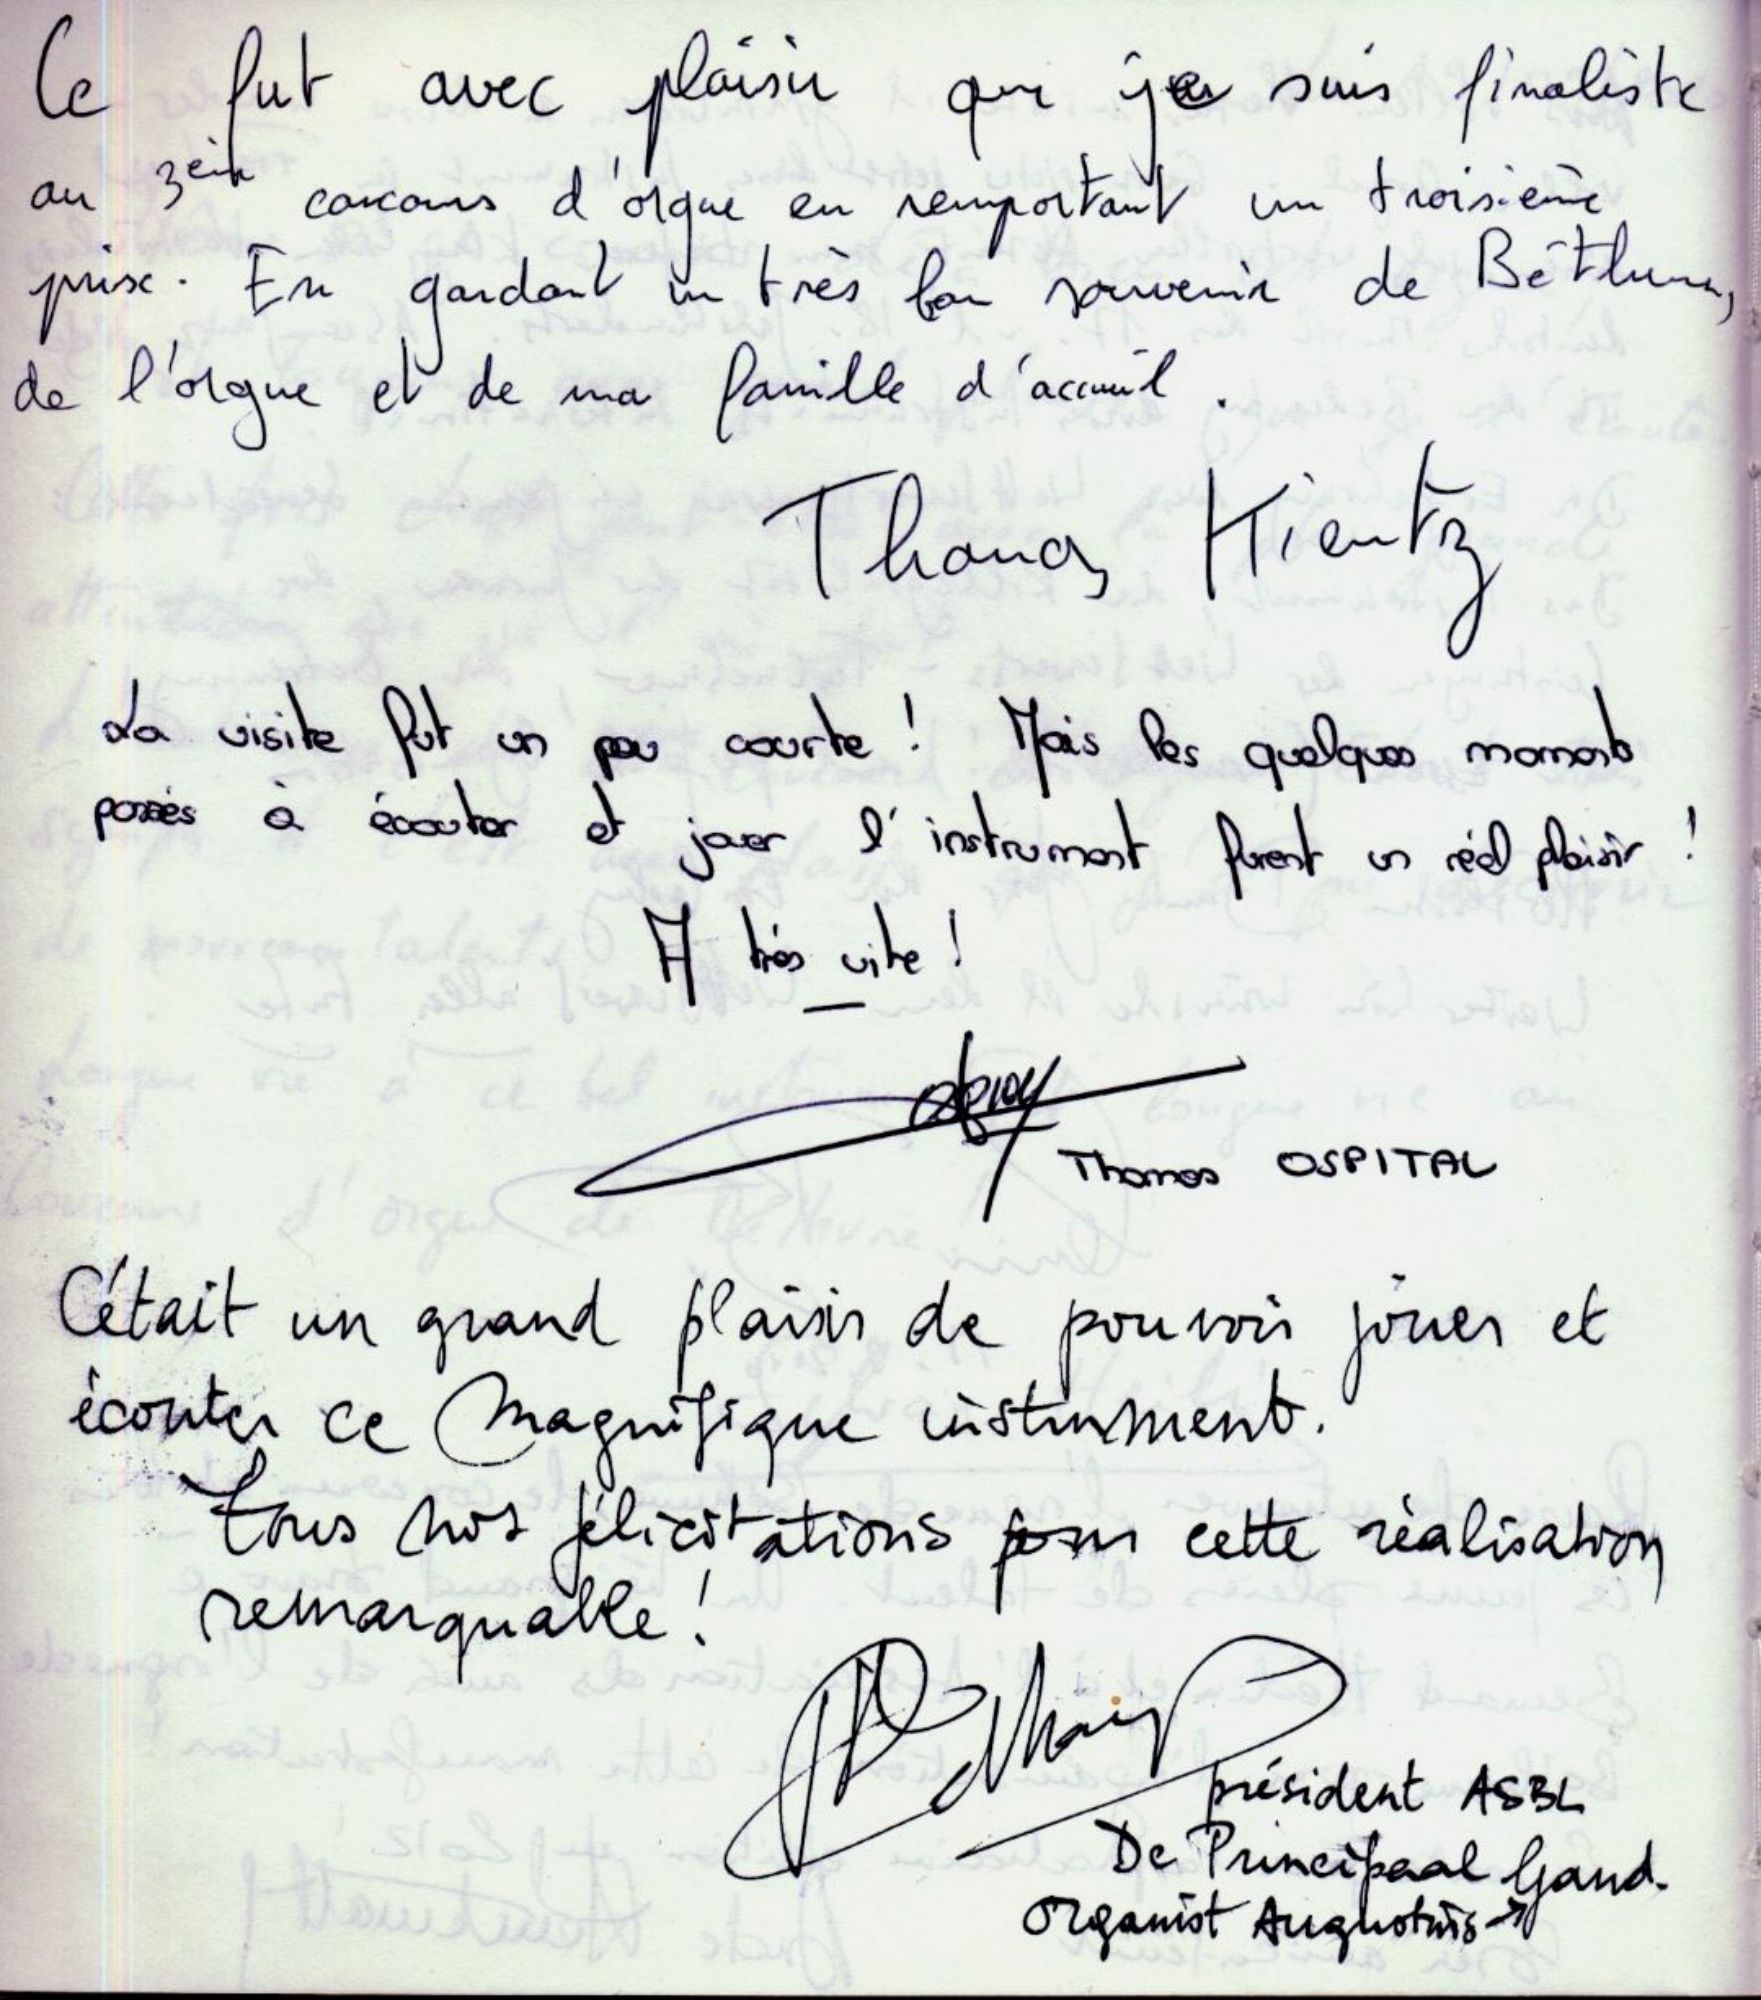 Ce fut avec plaisir que je suis finaliste
au 3èm concours d'orgue en remportant un troisième
prix. En gardant un très bon souvenir de Béthune,
de l'orgue et de ma famille d'accueil.
Thomas Kientz
La visite fut un peu courte ! Mais les quelques moments
passés à écouter et jouer l'instrument furent un réel plaisir !
A très vite !
Thomas OSPITAL
C'était un grand plaisir de pouvoir jouer et
écouter ce magnifique instrument.
Tous nos félicitations pour cette réalisation
remarquable !
président ASBL
De Principaal Gand.
organist Augustijns